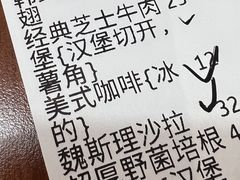 翅
经典芝士牛肉 25
堡{汉堡切开,
薯角}
美式咖啡{冰 12
的}
魏斯理沙拉 32
超厚野菌培根 4
汉堡